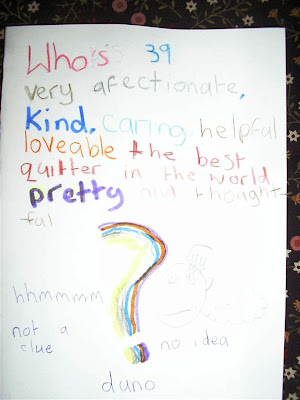 Who's 39
very afectionate,
Kind, caring, helpful
loveable the best
quilter in the world
pretty and thought-
ful
?
hhmmmm
not a
clue
no idea
duno